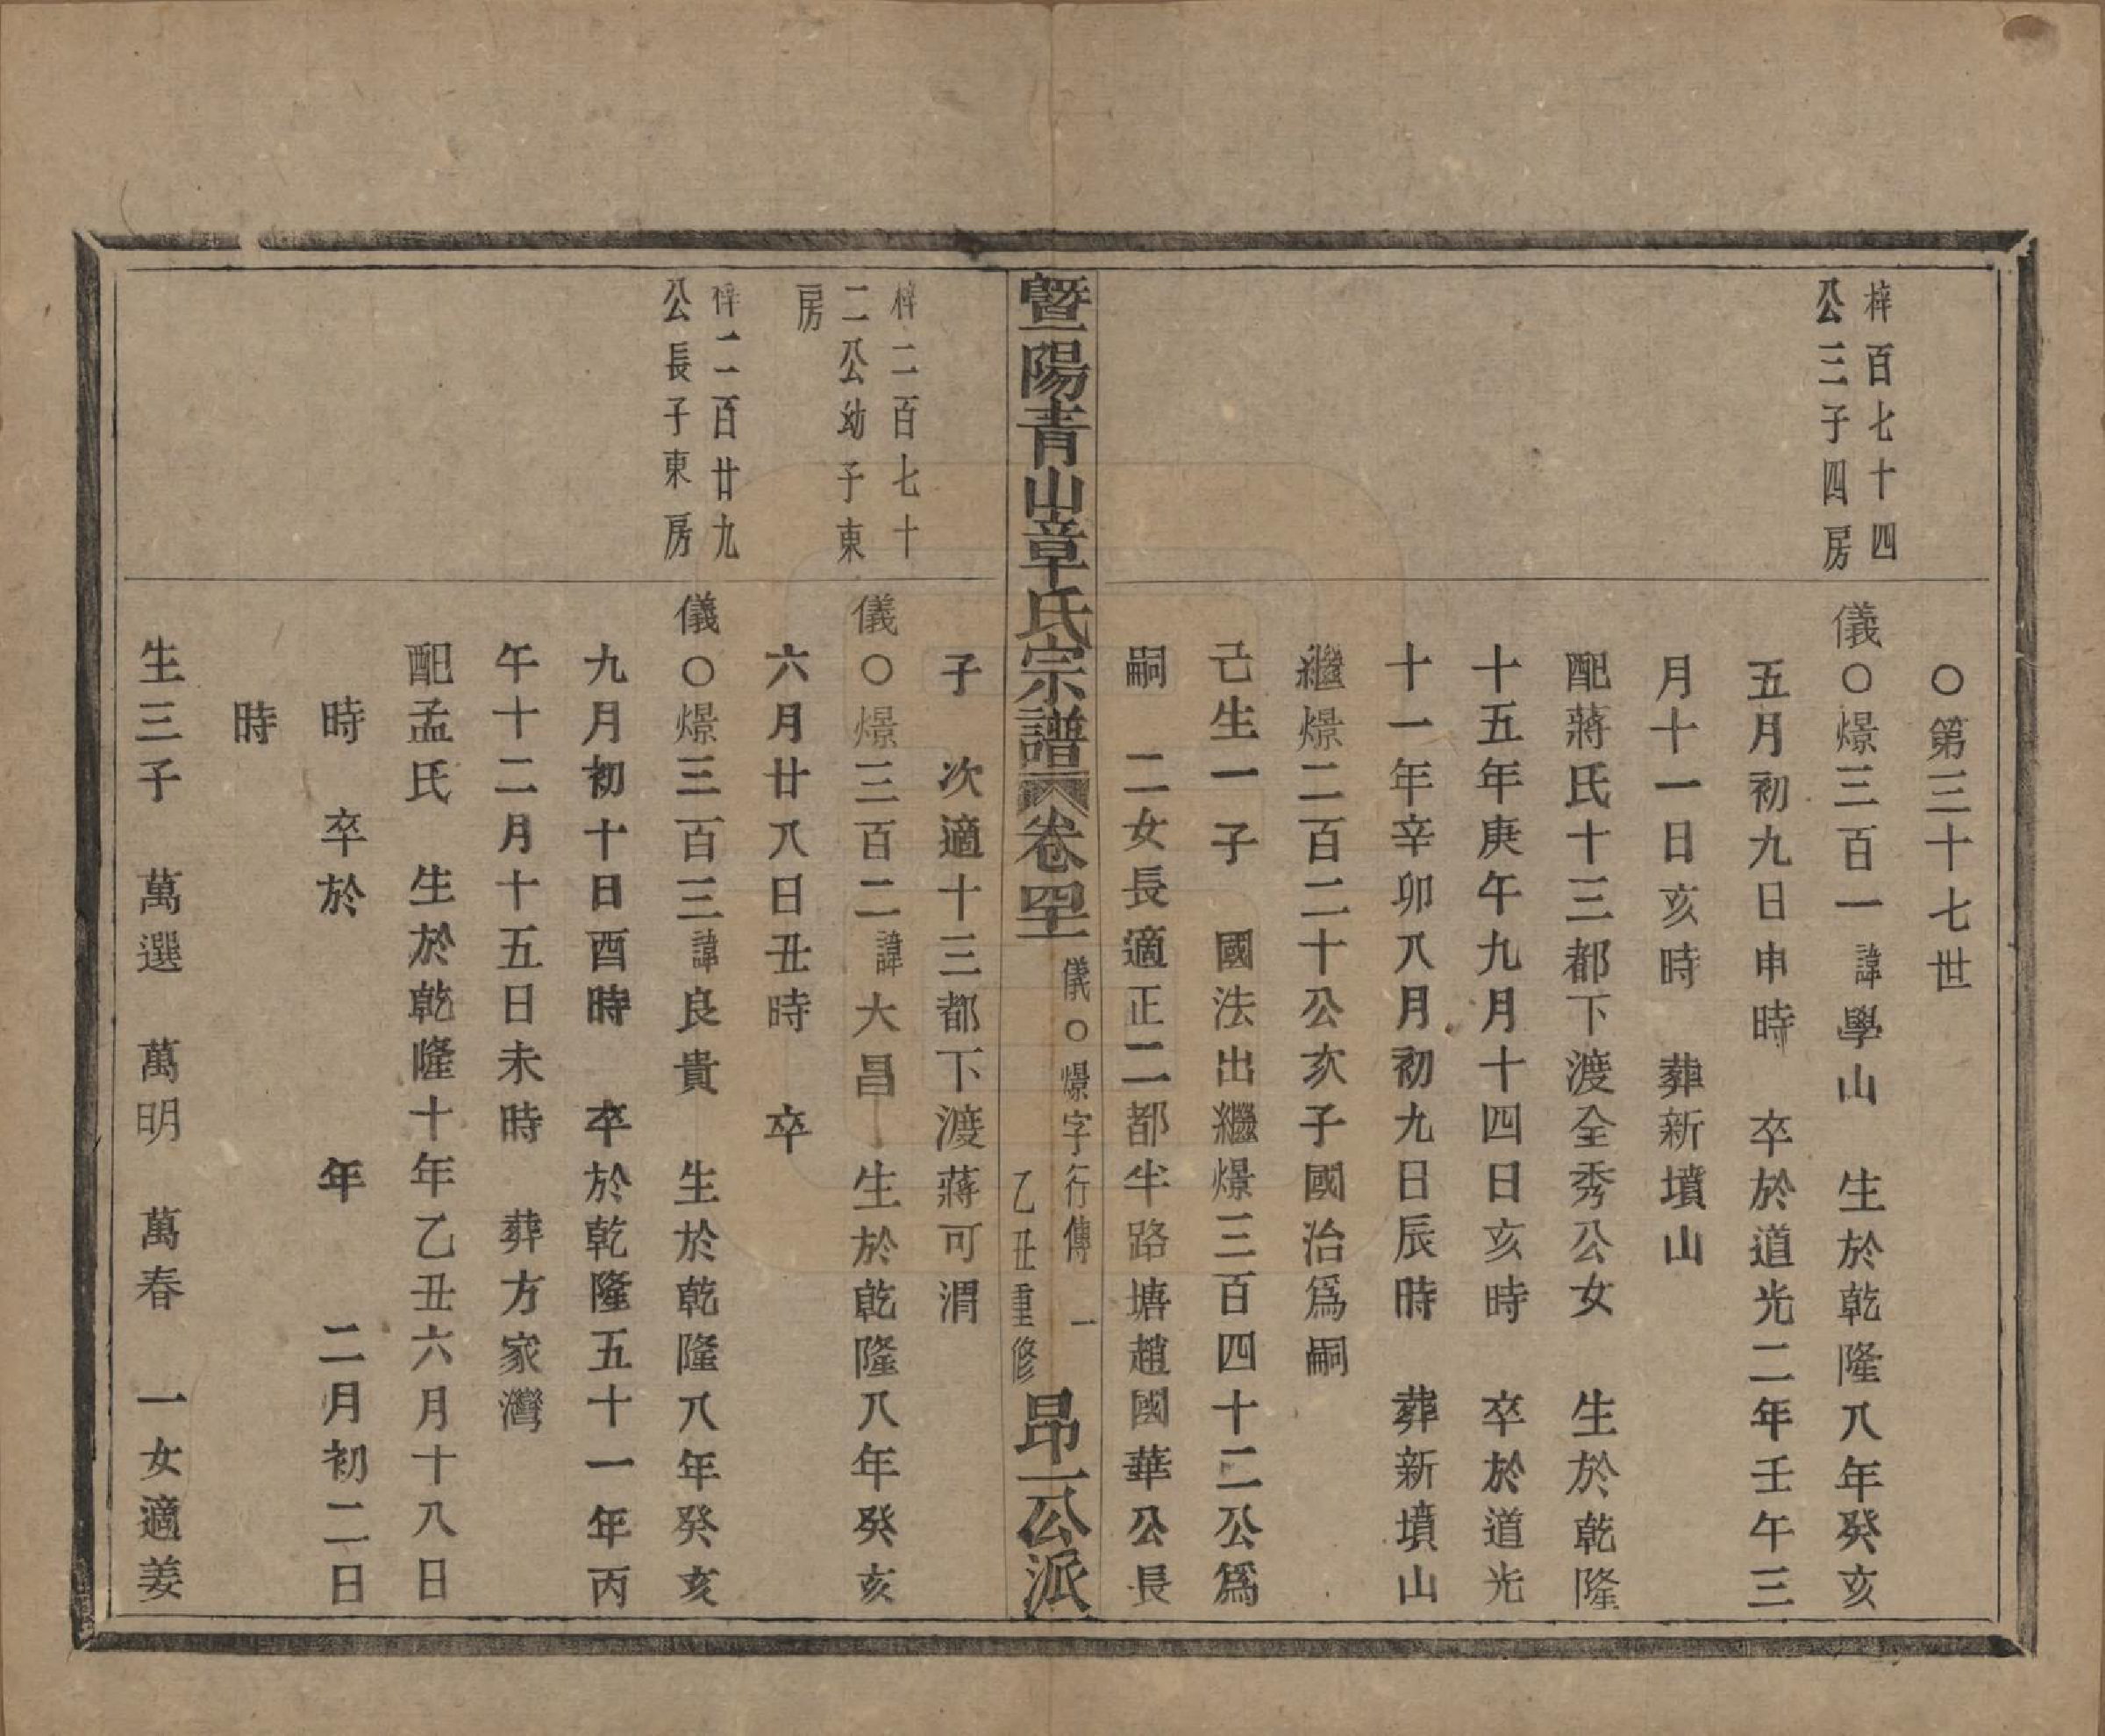 〇第三十七世
梓百七十四
公三子四房
儀〇燝三百一諱學山　生於乾隆八年癸亥
五月初九日申時　卒於道光二年壬午三
月十一日亥時　葬新墳山
配蔣氏十三都下渡全秀公女　生於乾隆
十五年庚午九月十四日亥時　卒於道光
十一年辛卯八月初九日辰時　葬新墳山
繼燝二百二十公亥子國治爲嗣
己生一子　國法出繼燝三百四十二公爲
嗣　二女長適正二都半路塘趙國華公長
暨陽青山章氏宗譜　卷四十一　儀〇燝字行傳　一　乙丑重修　昂一公派
子　次適十三都下渡蔣可渭
梓二百七十
二公幼子東
房
儀〇燝三百二諱大昌　生於乾隆八年癸亥
六月廿八日丑時　卒
梓二百廿九
公長子東房
儀〇燝三百三諱良貴　生於乾隆八年癸亥
九月初十日酉時　卒於乾隆五十一年丙
午十二月十五日未時　葬方家灣
配孟氏　生於乾隆十年乙丑六月十八日
時　卒於　　　　年　　二月初二日
時
生三子　萬選　萬明　萬春　一女適姜